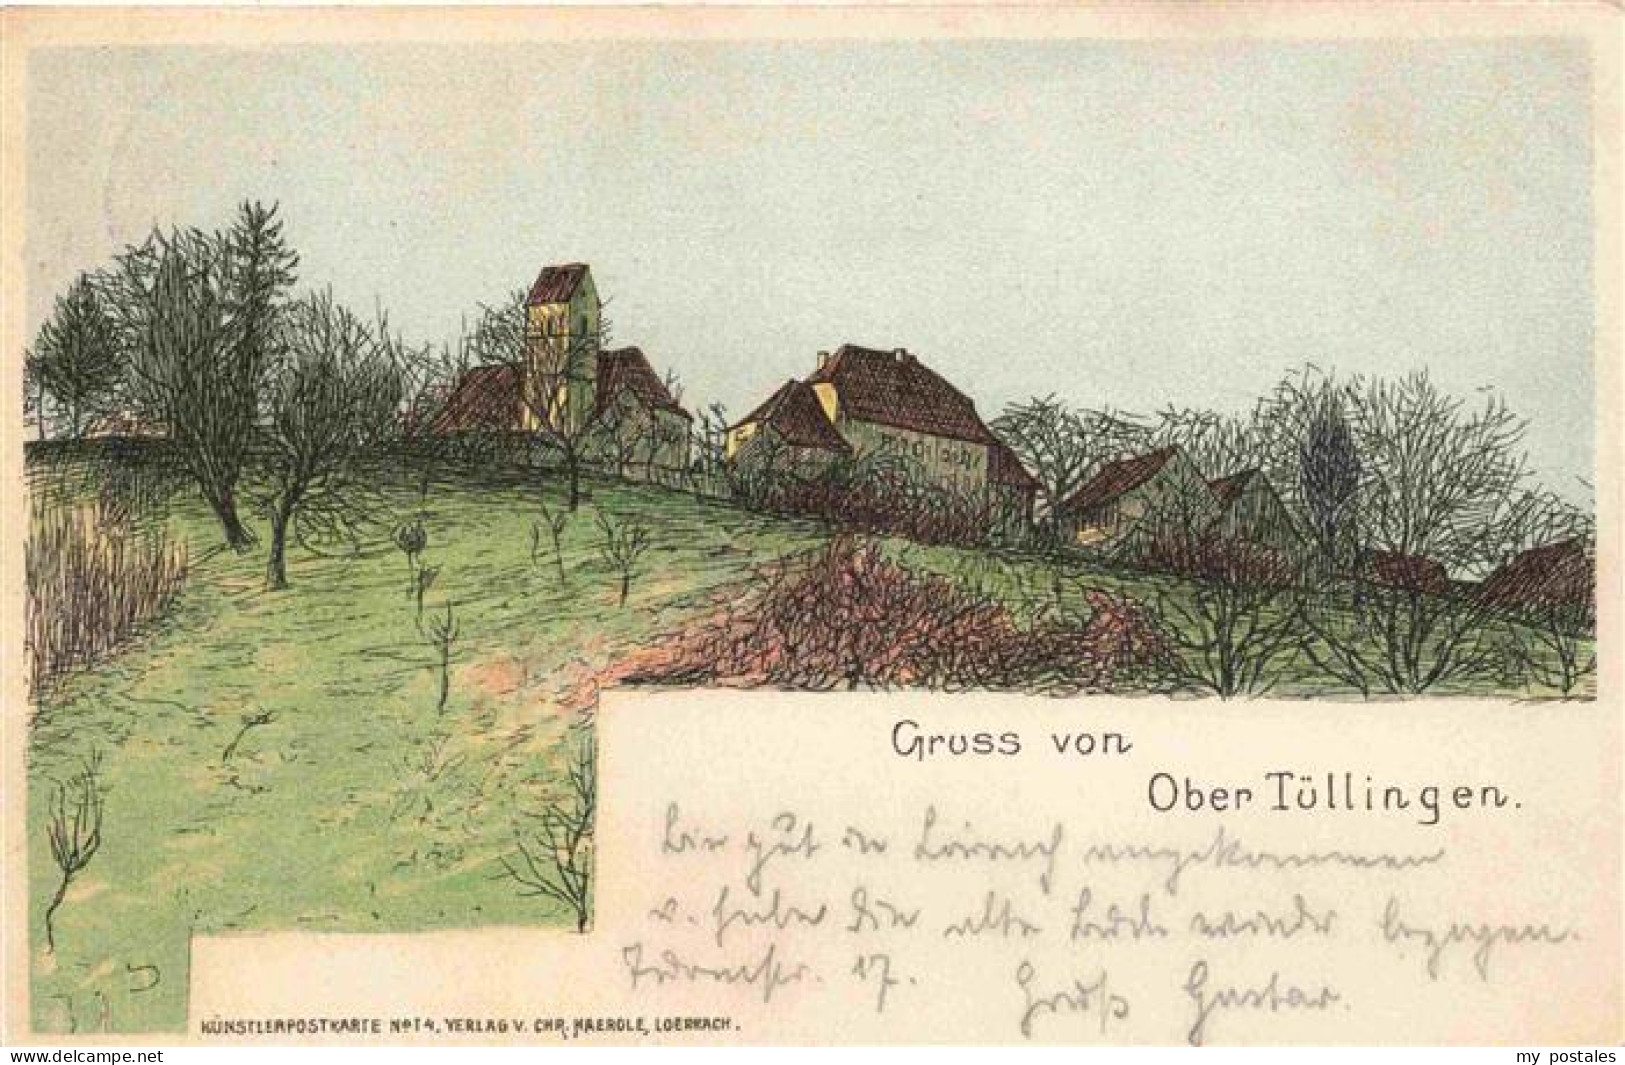 Gruss von
Ober Tüllingen.
Bin gut in Lörrach angekommen
u. habe die alte Bude wieder bezogen.
Turmstr. 17. Gruß Gustav.
KÜNSTLERPOSTKARTE No 14, VERLAG V. CHR. KAEROLE, LOERRACH.
www.delcampe.net
my_postales